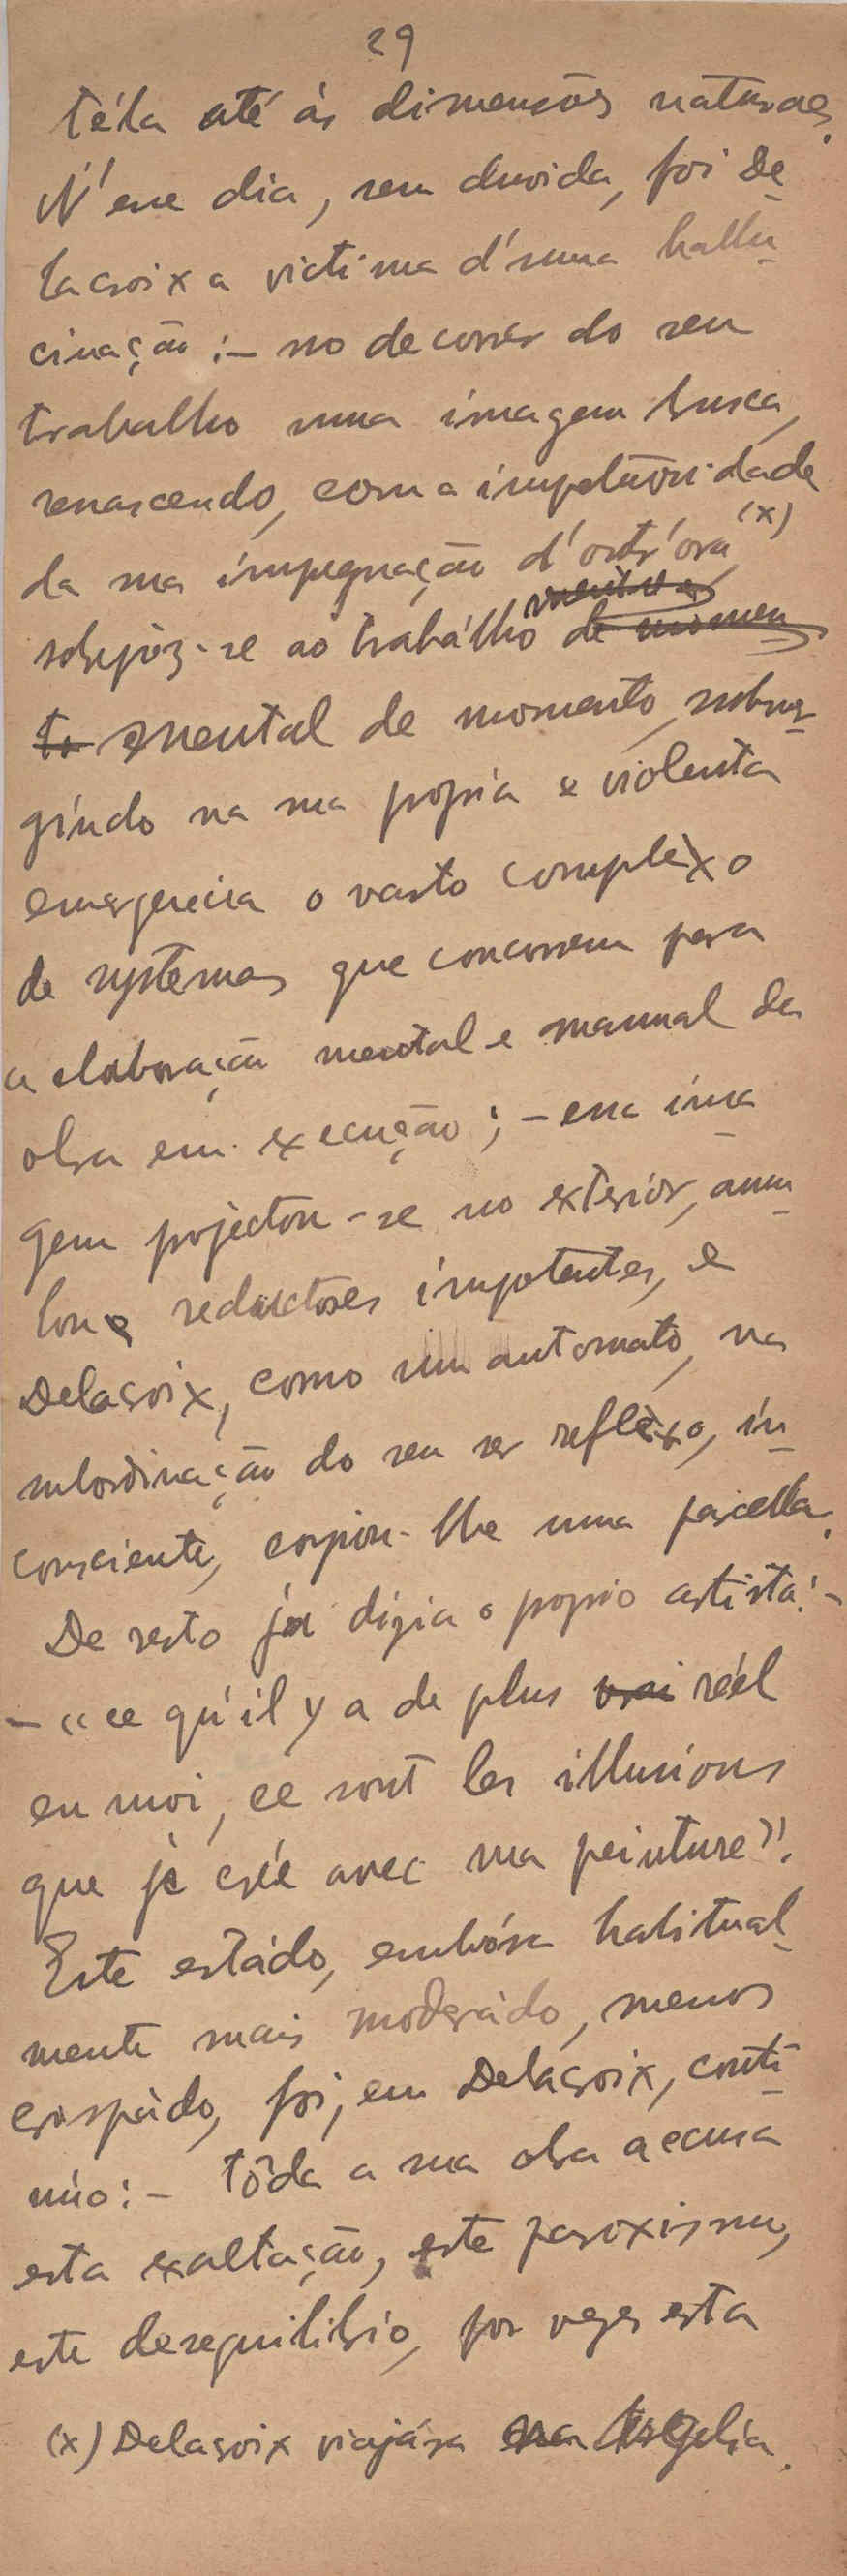 29
téla até ás dimensões naturaes.
N'esse dia, sem duvida, foi De
lacroix a victima d'uma hallu
cinação :– no decorrer do seu
trabalho uma imagem brusca,
renascendo, com a impetuosidade
da sua impregnação d'outr'ora, (x)
sobrepôz-se ao trabálho de momen
to mental de momento, subver
gindo na sua propria e violenta
emergencia o vasto complexo
de systemas que concorrem para
a elaboração mental e manual da
obra em execução ; – essa ima
gem projectou-se no exterior, annu
lou redutores impotentes, e
Delacroix, como um automato, na
subordinação do seu ser reflexo, in
consciente, copiou-lhe uma parcella.
De resto já dizia o proprio artista:–
– «ce qu'il y a de plus vrai réel
en moi, ce sont les illusions
que je crée avec ma peinture».
Este estádo, embóra habitual
mente mais moderádo, menos
crispádo, foi, em Delacroix, conti
núo :– tôda a sua obra accusa
esta exaltação, este paroxismo,
este desequilibrio, por vezes esta
(x) Delacroix viajára na Argelia.